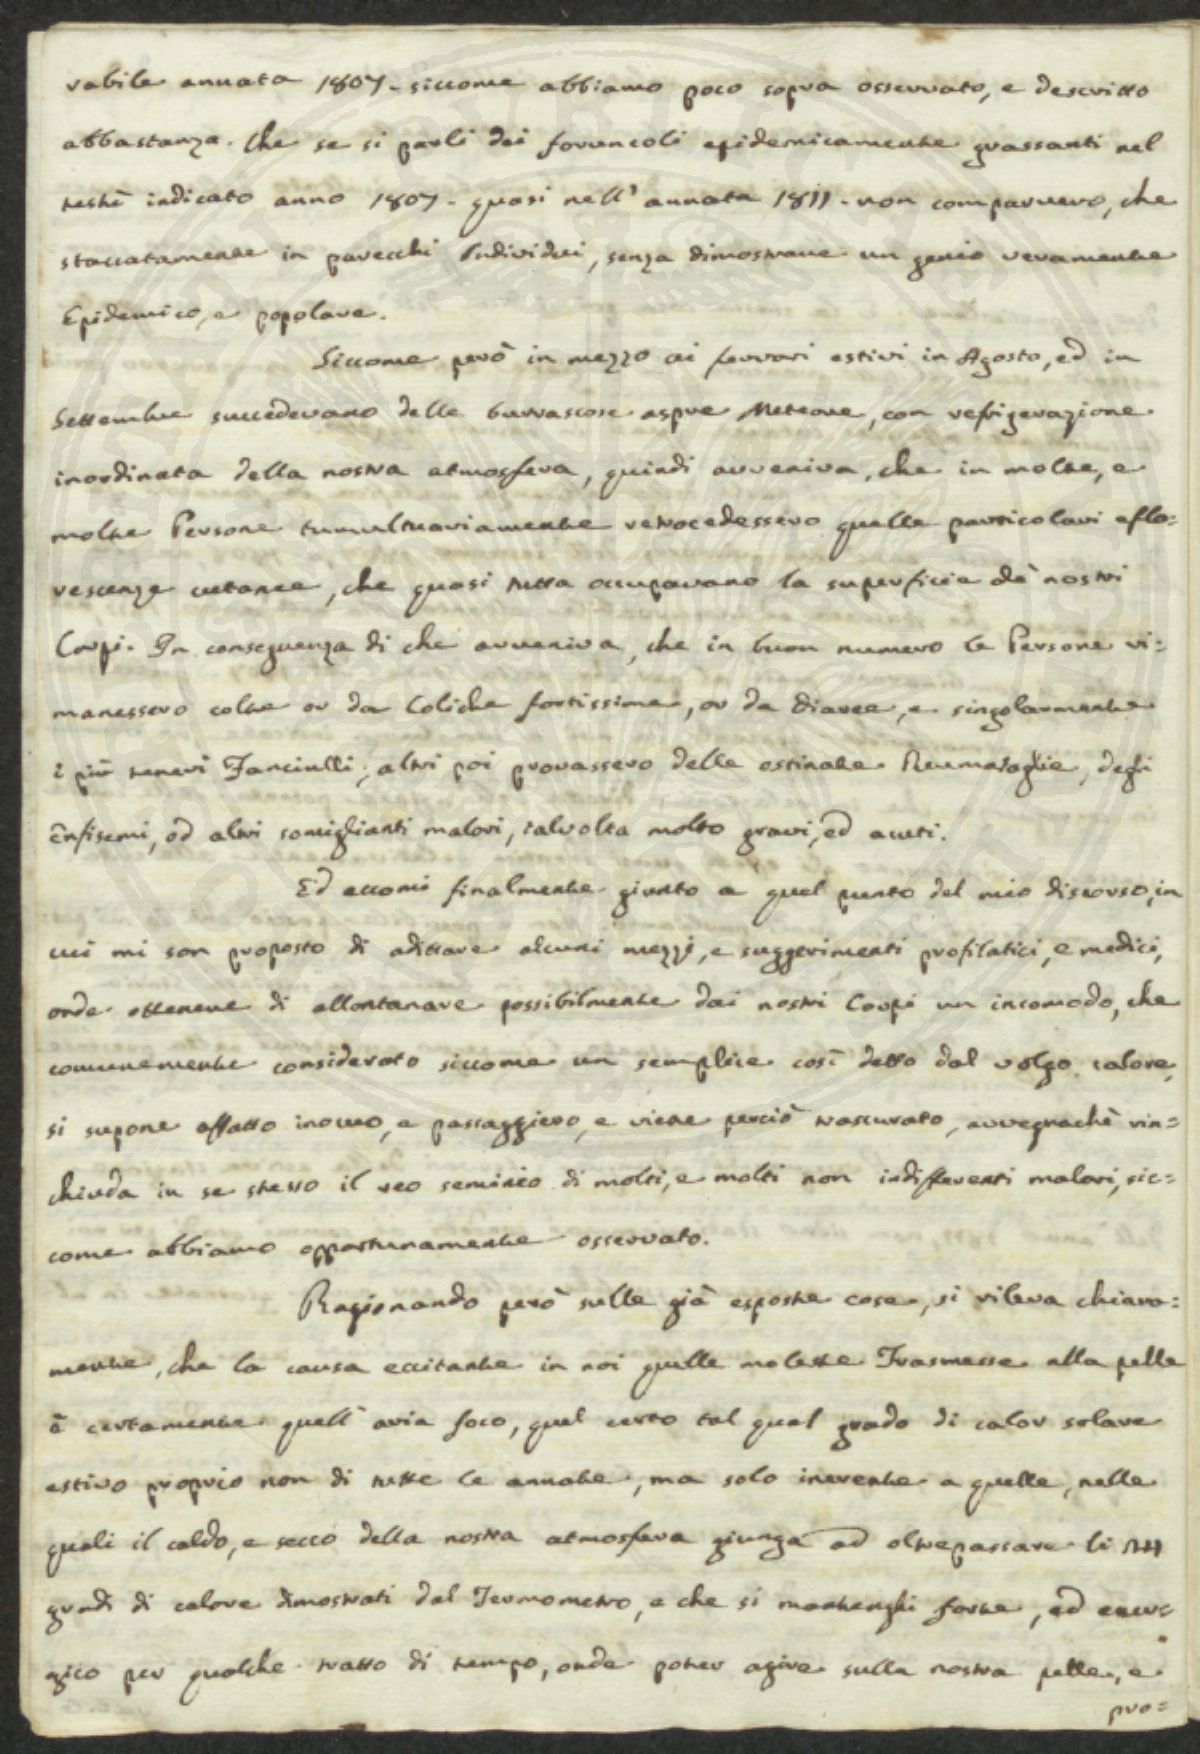 rabile annata 1807. siccome abbiamo poco sopra osservato, e descritto
abbastanza. Che se si parli dei foruncoli epidemicamente grassanti nel
testè indicato anno 1807. quasi nell'annata 1811. non comparvero, che
staccatamente in parecchi Individui, senza dimostrare un genio veramente
Epidemico, e popolare.
Siccome però in mezzo ai fervori estivi in Agosto, ed in
Settembre succedevano delle burrascose aspre Meteore, con refrigerazione
inordinata della nostra atmosfera, quindi avveniva, che in molte, e
molte Persone tumultuariamente retrocedessero quelle particolari efflo=
rescenze cutanee, che quasi tutta occupavano la superficie de' nostri
Corpi. In conseguenza di che avveniva, che in buon numero le Persone ri=
manessero colte or da Coliche fortissime, or da diaree, e singolarmente
i più teneri Fanciulli; altri poi provassero delle ostinate Reumatoglie, degli
Enfisemi, od altri somiglianti malori, talvolta molto gravi, ed acuti.
Ed eccomi finalmente giunto a quel punto del mio discorso, in
cui mi son proposto di adittare alcuni mezzi, e suggerimenti profilatici, e medici,
onde ottenere di allontanare possibilmente dai nostri Corpi un incomodo, che
comunemente considerato siccome un semplice così detto dal volgo calore,
si supone affatto inocuo, e passaggiero, e viene perciò trascurato, avvegnachè rin=
chiuda in se stesso il reo seminio di molti, e molti non indifferenti malori, sic=
come abbiamo opportunamente osservato.
Ragionando però sulle già esposte cose, si rileva chiara=
mente, che la causa eccitante in noi quelle moleste Trasmesse alla pelle
è certamente quell'aria foco, quel certo tal qual grado di calor solare
estivo proprio non di tutte le annate, ma solo inerente a quelle, nelle
quali il caldo, e secco della nostra atmosfera giunga ad oltrepassare li
gradi di calore dimostrati dal Termometro, e che si mantenghi forte, ed ener=
gico per qualche tratto di tempo, onde poter agire sulla nostra pelle, e
pro=